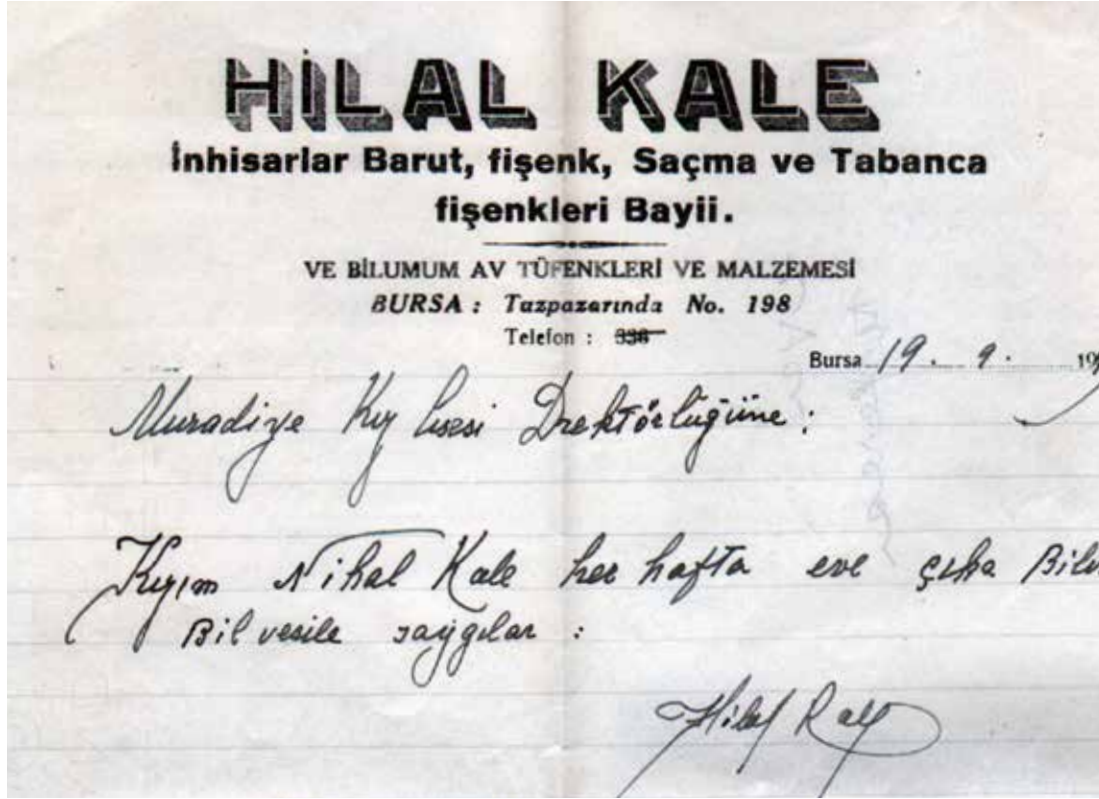 HİLAL KALE
İnhisarlar Barut, fişenk, Saçma ve Tabanca
fişenkleri Bayii.
VE BİLUMUM AV TÜFENKLERİ VE MALZEMESİ
BURSA : Tuzpazarında No. 198
Telefon : 336
Bursa 19. 9. 19
Muradiye Kız lisesi Drektörlüğüne :
Kızım Nihal Kale her hafta eve çıka Bilir
Bil vesile saygılar :
Hilal Kale